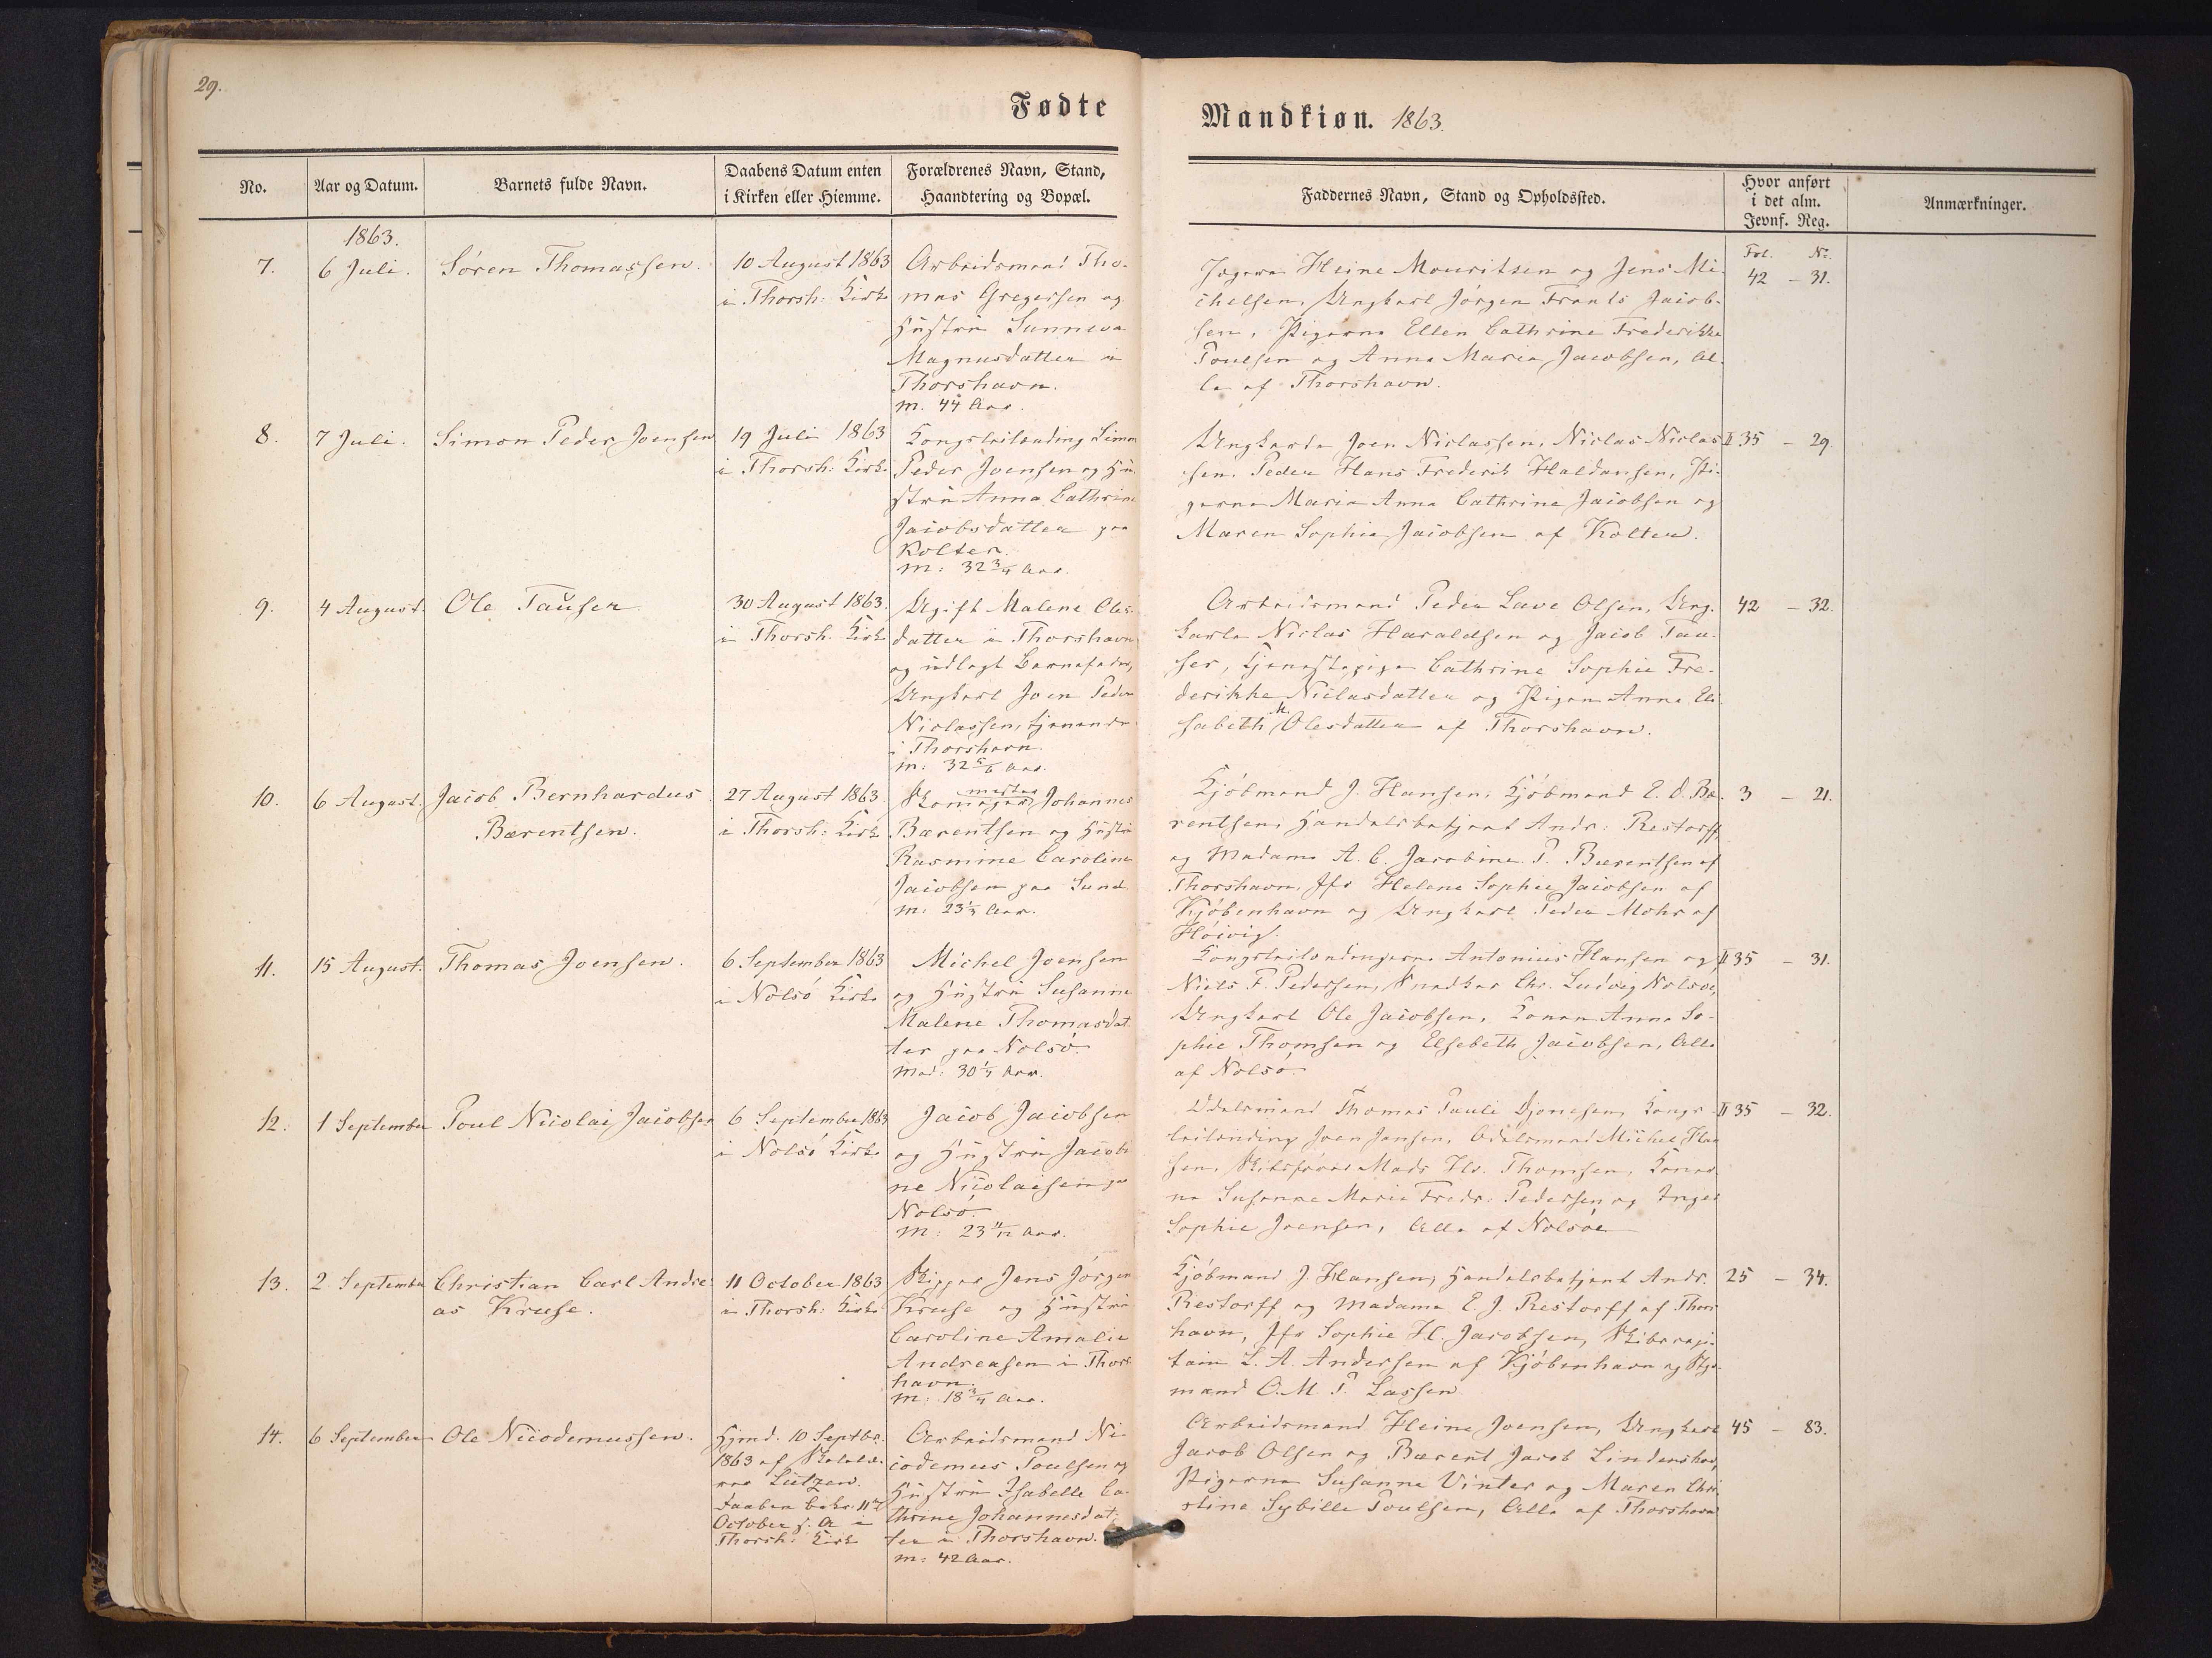 29.
Fødte
Mandkiøn. 1863.
No.
Aar og Datum.
Barnets fulde Navn.
Daabens Datum enten
i Kirken eller Hiemme.
Forældrenes Navn, Stand,
Haandtering og Bopæl.
Faddernes Navn, Stand og Opholdssted.
Hvor anført
i det alm.
Jevnf. Reg.
Anmærkninger.
1863.
7.
6 Juli.
Sören Thomassen.
10 August 1863
i Thorsh: Kirke
Arbeidsmand Tho-
mas Gregersen og
Hustru Sunneva
Magnusdatter i
Thorshavn.
M. 44 Aar.
Heine Mouritsen og Jens Mi-
chelsen, Ungkarl Jörgen Frants Jacob-
sen, Pigerne Ellen Cathrine Frederikke
Poulsen og Anna Maria Jacobsen, Al-
le af Thorshavn.
Fol. No.
42 – 31.
8.
7 Juli.
Simon Peder Joensen
19 Juli 1863
i Thorsh: Kirke
Kongsleilænding Simon
Peder Joensen og Hu-
stru Anna Cathrine
Jacobsdatter paa
Kolter.
M: 32 3/4 Aar.
Ungkarle Joen Niclassen, Niclas Niclas-
sen, Peder Hans Frederik Haldansen, Pi-
gerne Maria Anna Cathrine Jacobsen og
Maren Sophie Jacobsen af Kolter.
II 35 – 29
9.
4 August.
Ole Tauser
30 August 1863.
i Thorsh. Kirke
Ugift Malene Oles-
datter i Thorshavn
og udlagt Barnefader,
Ungkarl Joen Peder
Niclassen, tjenende
i Thorshavn.
M: 32 5/6 Aar.
Arbeidsmand Peder Lave Olsen, Ung-
karle Niclas Haraldsen og Jacob Tau-
ser, Tjenestepige Cathrine Sophie Fre-
derikke Niclasdatter og Pigen Anna Eli-
sabeth Olesdatter af Thorshavn.
42 – 32.
10.
6 August.
Jacob Bernhardus
Bærentsen.
27 August 1863
i Thorsh: Kirke
Johannes
Bærentsen og Hustru
Rasmine Caroline
Jacobsen paa Sund
M: 23 Aar.
Kjöbmand J. Hansen, Kjöbmand E. O. Bæ-
rentsen, Handelsbetjent Andr: Restorff,
og Madame A. C. Jacobine P. Bærentsen af
Thorshavn, Jfr Helene Sophie Jacobsen af
Kjöbenhavn og Ungkarl Peder Mohr af
Höivig.
3 – 21.
11.
15 August.
Thomas Joensen.
6 September 1863
i Nolsö Kirke
Michel Joensen
og Hustru Susanne
Malene Thomasdat-
ter paa Nolsö.
Mod: 30 Aar.
Kongsleilændingerne Antonius Hansen og
Niels F. Pedersen, Snedker Chr. Ludvig Nolsöe,
Ungkarl Ole Jacobsen, Konen Anna So-
phie Thomsen og Elsebeth Jacobsen, Alle
af Nolsö.
II 35 – 31.
12.
1 September
Poul Nicolai Jacobsen
6 September 1863
i Nolsö Kirke
Jacob Jacobsen
og Hustru Jacobi-
ne Nicolaisen paa
Nolsö.
M: 23 11/12 Aar.
Odelsmand Thomas Pauli Djonesen, Kongs-
leilænding Joen Jensen, Odelsmand Michel Han-
sen, Skibsförer Mads Hs. Thomsen, Koner-
ne Susanne Marie Fredr: Pedersen og Inger
Sophie Joensen, Alle af Nolsöe
II 35 – 32.
13.
2 September
Christian Carl Andre-
as Kruse.
11 October 1863
i Thorsh: Kirke
Skipper Jens Jörgen
Kruse og Hustru
Caroline Amalie
Andreasen i Thors-
havn.
M: 18 3/4 Aar.
Kjöbmand J. Hansen, Handelsbetjent Andr.
Restorff og Madame E. J. Restorff af Thors-
havn, Jfr Sophie H. Jacobsen, Skibscapi-
tain L. A. Andersen af Kjöbenhavn og Styr-
mand O. M. P. Lassen
25 – 34.
14.
6 September
Ole Nicodemussen.
Hjmd. 10 Septbr.
1863 af Skolelæ-
rer Lützen.
Daaben bekr. 11te
October s. A. i
Thorsh: Kirke
Arbeidsmand Ni-
codemus Poulsen og
Hustru Isabelle Ca-
thrine Johannesdat-
ter i Thorshavn.
M: 42 Aar.
Arbeidsmand Heine Joensen, Ungkarl
Jacob Olsen og Bærent Jacob Lindenskov,
Pigerne Susanne Vinter og Maren Chri-
stine Sybille Poulsen, Alle af Thorshavn
45 – 83.